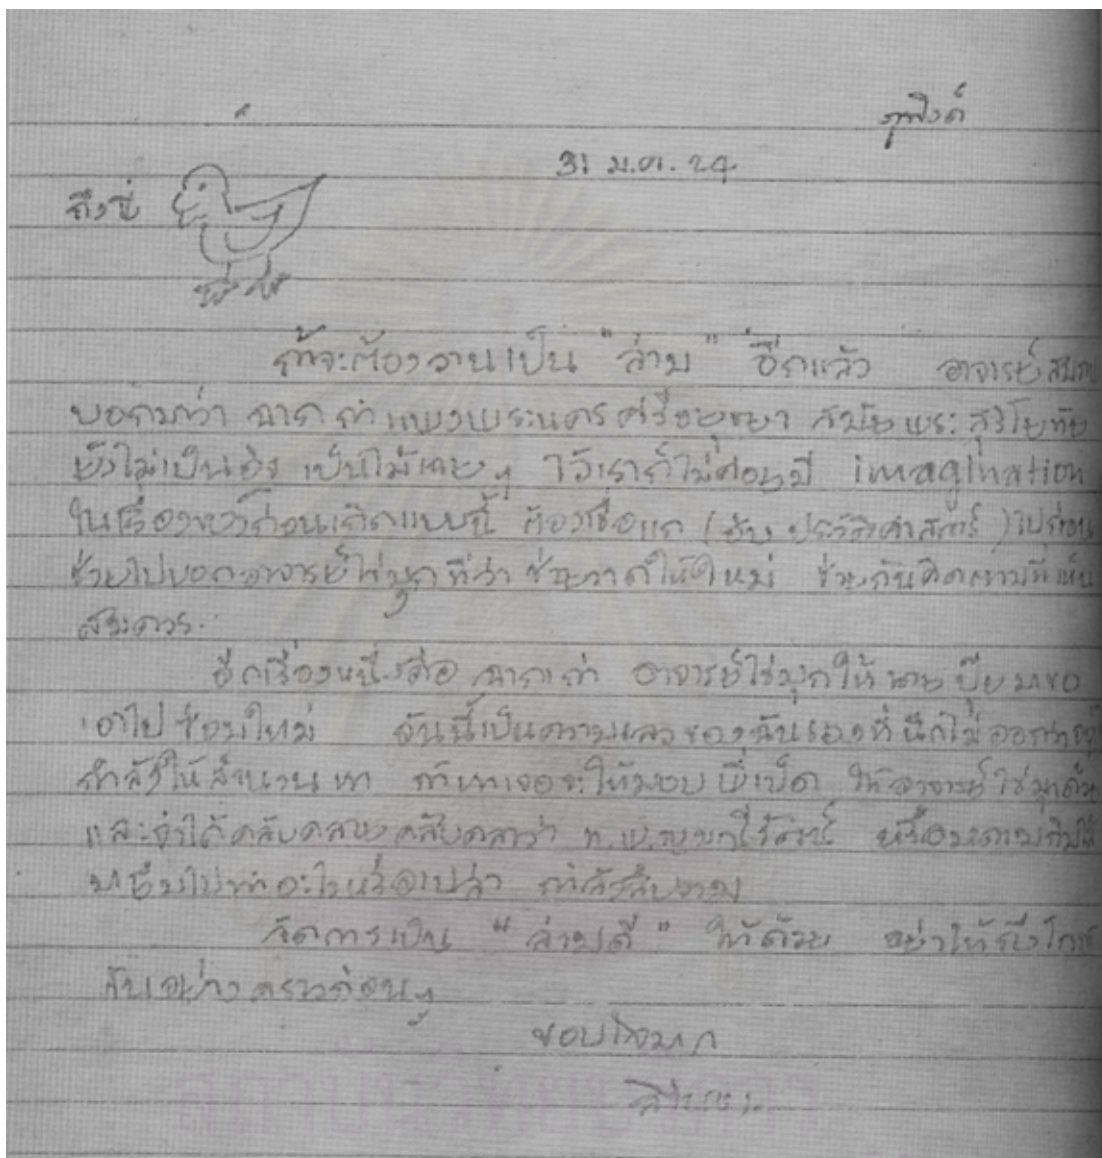 ภูพิงค์
31 ม.ค. 24
ถึงพี่
ถ้าจะต้องวานเป็น "ล่าม" อีกแล้ว อาจารย์
บอกมาว่า ฉากกำแพงพระนครศรีอยุธยา สมัยพระสุริโยทัย
ยังไม่เป็นอิฐ เป็นไม้ ๆ เราก็ไม่ค่อยมี imagination
ในเรื่องก่อนเกิดแบบนี้ ต้องเชื่อแก ( ประวัติศาสตร์ ) ไปก่อน
ช่วยไปบอกอาจารย์ไข่มุกที่ว่า ช่วยวาดให้ใหม่ ช่วยกันคิดตามที่เห็น
สมควร
อีกเรื่องหนึ่งคือ ฉากเก่า อาจารย์ไข่มุกให้นายปุ๊ยมาขอ
เอาไปซ่อมใหม่ อันนี้เป็นความเลวของฉันเองที่นึกไม่ออกว่าอยู่
กำลังให้สำนวนหา ถ้าหาเจอจะให้มอบพี่เป็ด ให้อาจารย์ไข่มุกด้วย
และจำได้คลับคล้ายคลับคลาว่า
มายืมไปทำอะไรหรือเปล่า กำลังสืบถาม
จัดการเป็น "ล่ามดี" ให้ด้วย อย่าให้ถึงโกรธ
กันอย่างคราวก่อน ๆ
ขอบใจมาก